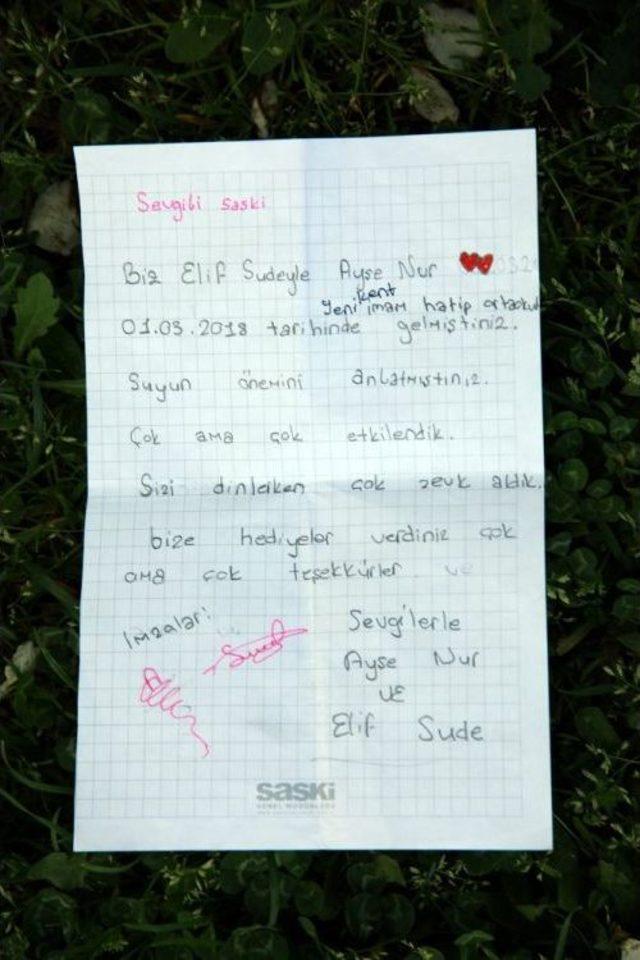 Sevgili saski
Biz Elif Sudeyle Ayşe Nur
kent
Yeni imam hatip ortaokul
01.03.2018 tarihinde gelmiştiniz.
Suyun önemini anlatmıştınız.
Çok ama çok etkilendik.
Sizi dinlerken çok zevk aldık.
bize hediyeler verdiniz çok
ama çok teşekkürler ve
İmzalar:
Sevgilerle
Ayşe Nur
ve
Elif Sude
saski
GENEL MÜDÜRLÜĞÜ